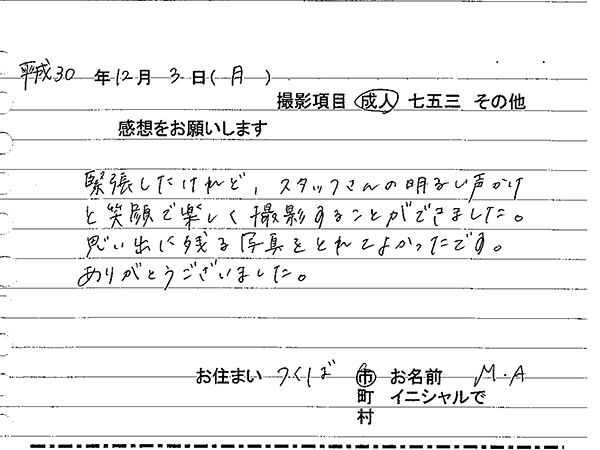 平成30 年 12 月 3 日( 月 )
撮影項目 成人 七五三 その他
感想をお願いします
緊張したけれど、スタッフさんの明るい声かけ
と笑顔で楽しく撮影することができました。
思い出に残る写真をとれてよかったです。
ありがとうございました。
お住まい つくば 市 お名前 M.A
町 イニシャルで
村